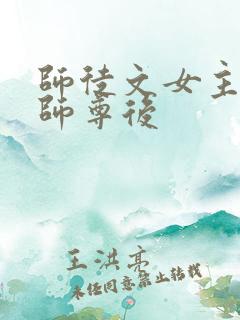 師徒文女主
師尊後
王洪亮
未經同意禁止轉載